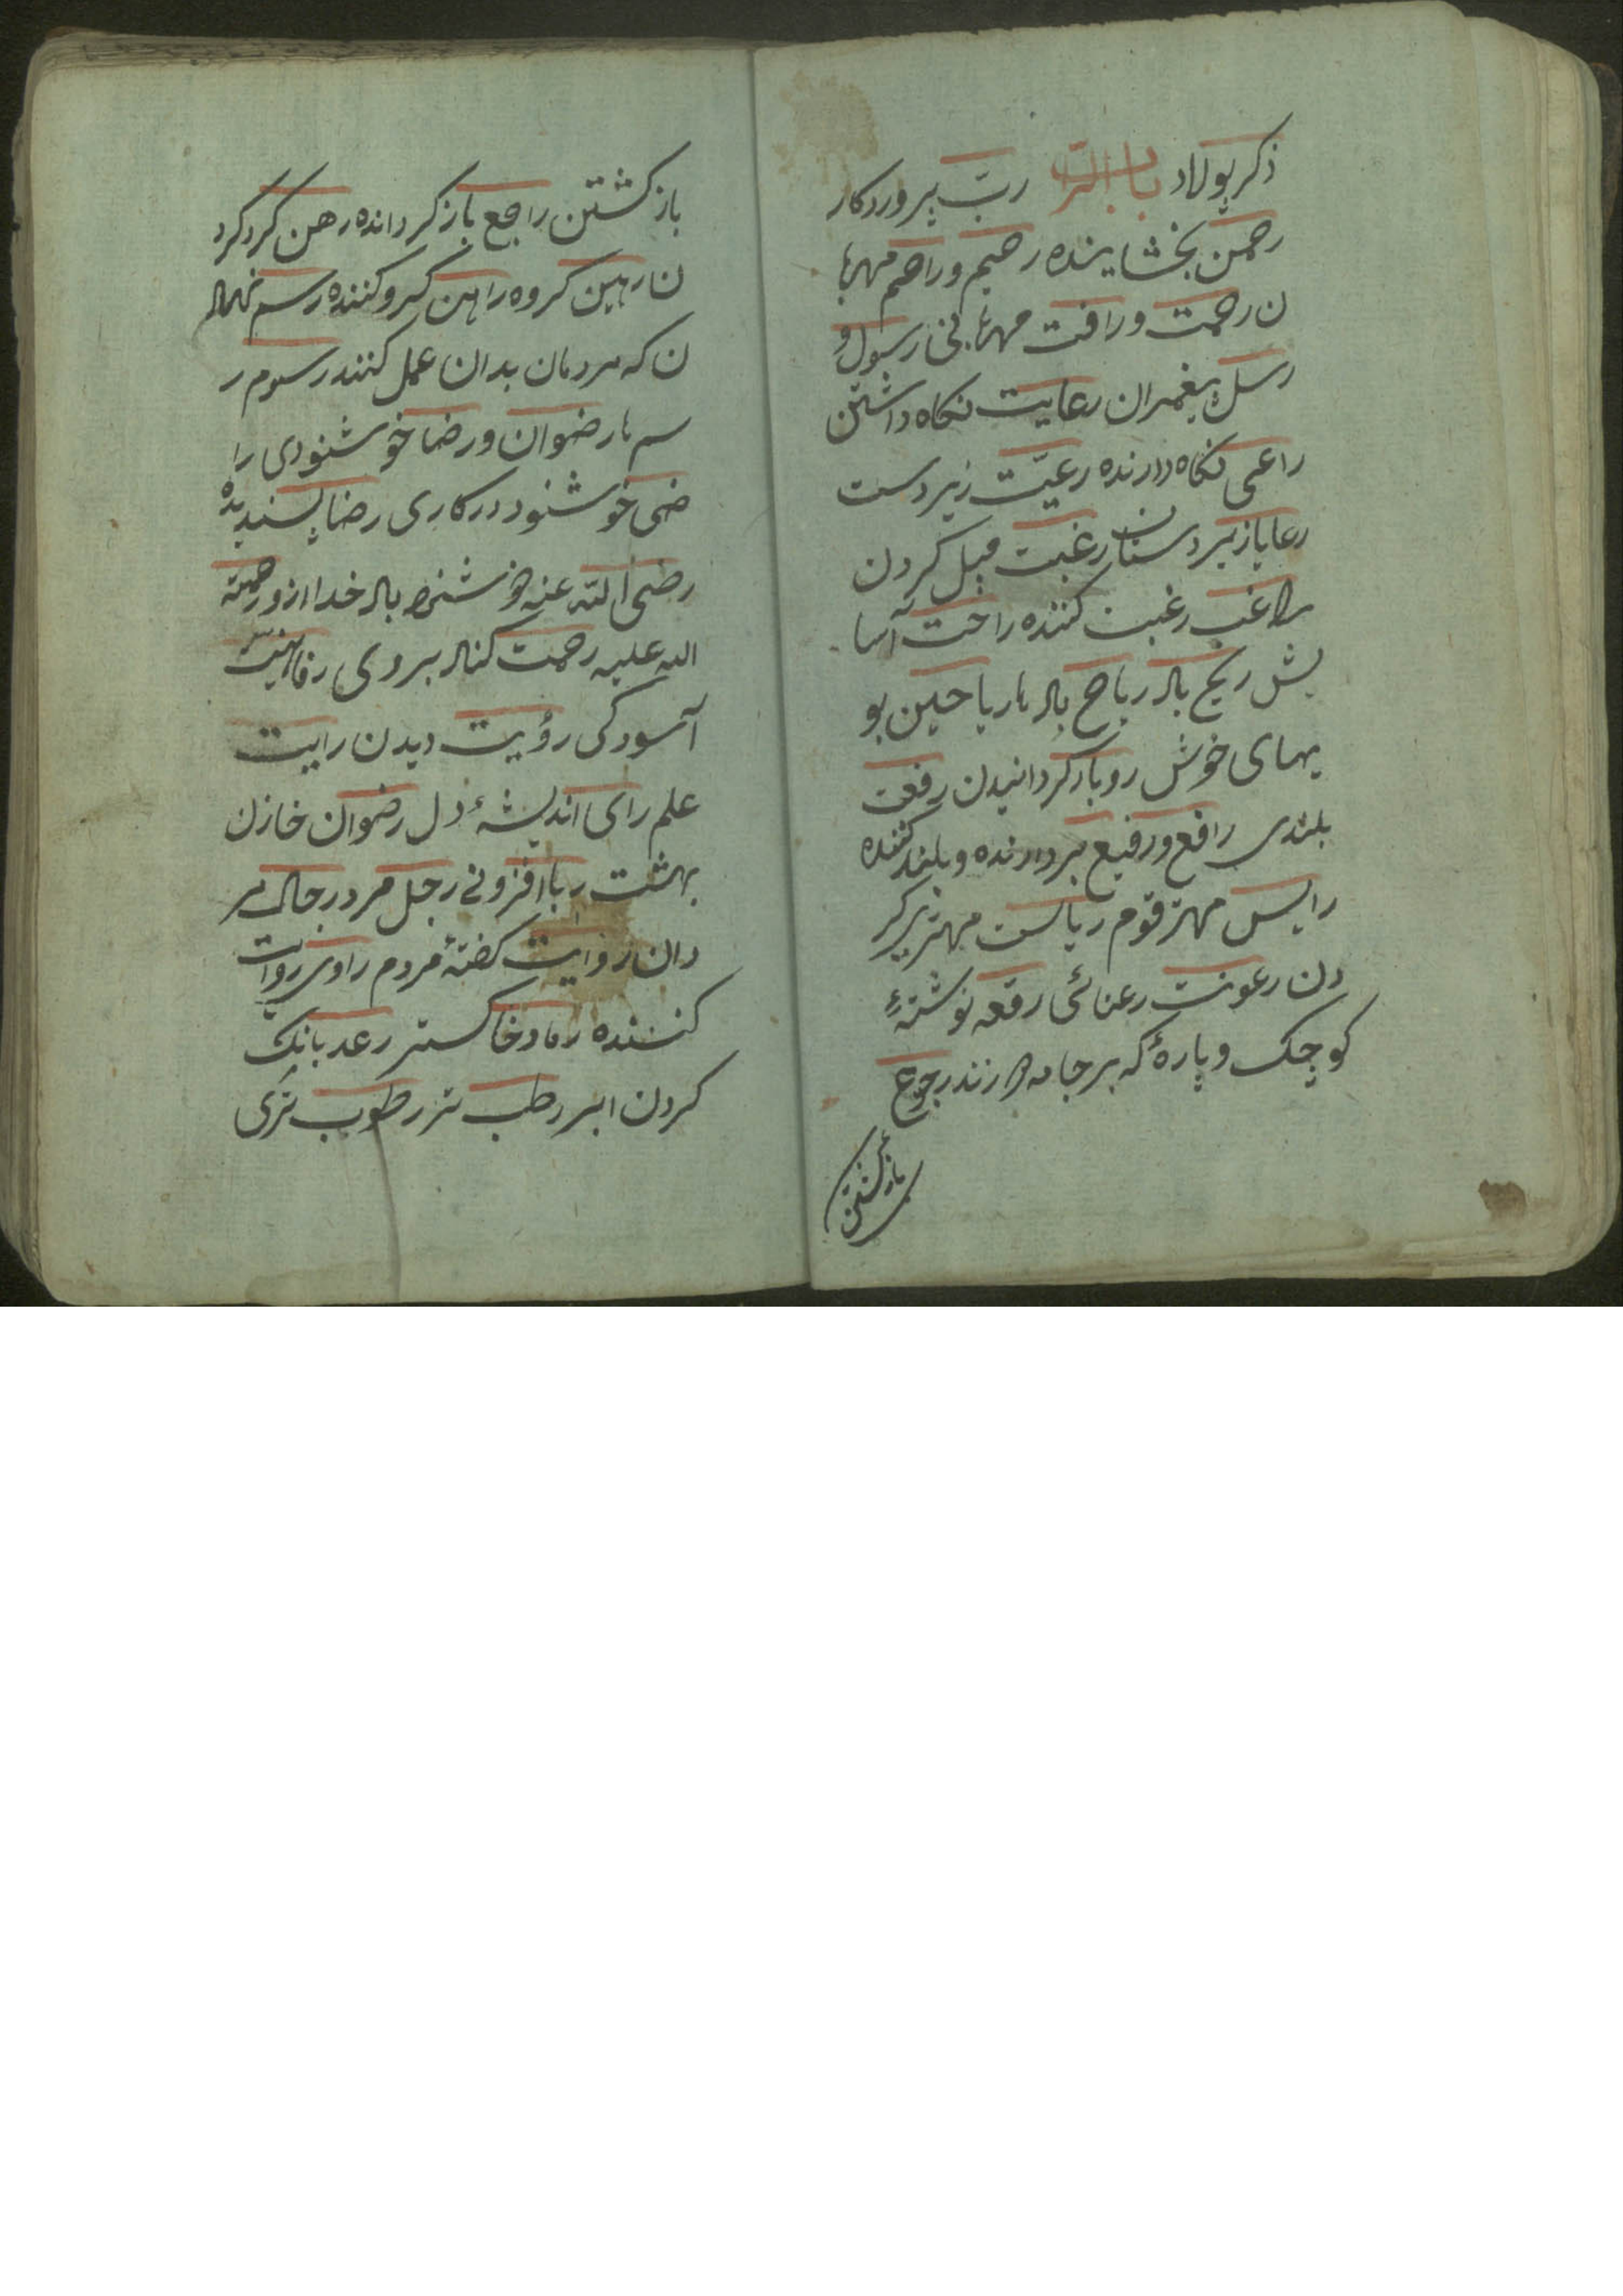 ذکر پولاد باب الرا ربّ پروردکار
رحمن بخشاینده رحیم و راحم مهربا
ن رحمت و رافت مهربانی رسول و
رسل پیغمبران رعایت نکاه داشتن
راعی نکاه دارنده رعیّت زیردست
رعایا زیردستان رغبت میل کردن
راغب رغبت کننده راحت آسا
یش ریح باد ریاح بادها ریاحین بو
یهای خوش رد باز کردانیدن رفعت
بلندی رافع و رفیع بردارنده و بلند کننده
رایس مهتر قوم ریاست مهتری کر
دن رعونت رعنائی رقعه نوشتهٔ
کوچک و پارهٔ که بر جامه دوزند رجوع
بازکشتن
بازکشتن راجع بازکرداننده رهن کرو کرد
ن رهین کروه راهن کرو کننده رسم نهاد
ن که مردمان بدان عمل کنند رسوم ر
سمها رضوان و رضا خوشنودی را
ضی خوشنود در کاری رضا پسندیده
رضی اللّه عنه خوشنود باد خدا ازو رحمة
الله علیه رحمت کناد بر وی رفاهیت
آسودکی رؤیت دیدن رایت
علم رای اندیشهٔ دل رضوان خازن
بهشت ربا افزونی رجل مرد رجال مر
دان روایت کفتهٔ مردم راوی روایت
کننده رماد خاکستر رعد بانک
کردن ابر رطب تر رطوب تری